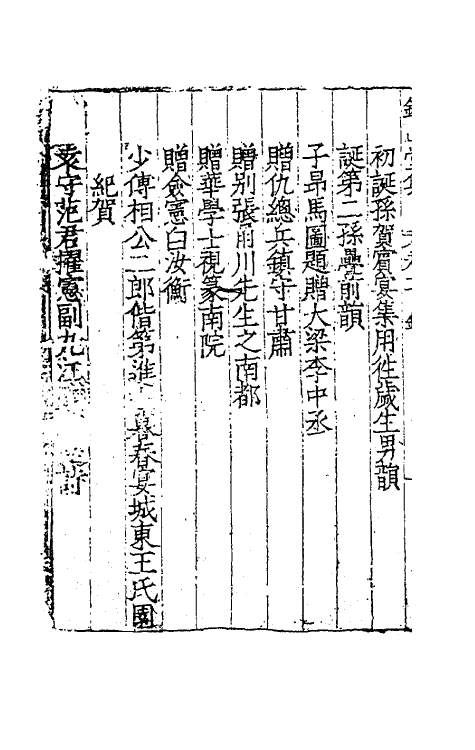 初誕孫賀賓宴集用徃歲生男韻
誕第二孫疊前韻
子昻馬圖題贈大梁李中丞
贈仇總兵鎮守甘肅
贈别張甬川先生之南都
贈華學士視篆南院
贈僉憲白汝衡
少傅相公二郎偕第進暮春宴城東王氏園
紀賀
袁守范君擢憲副九江